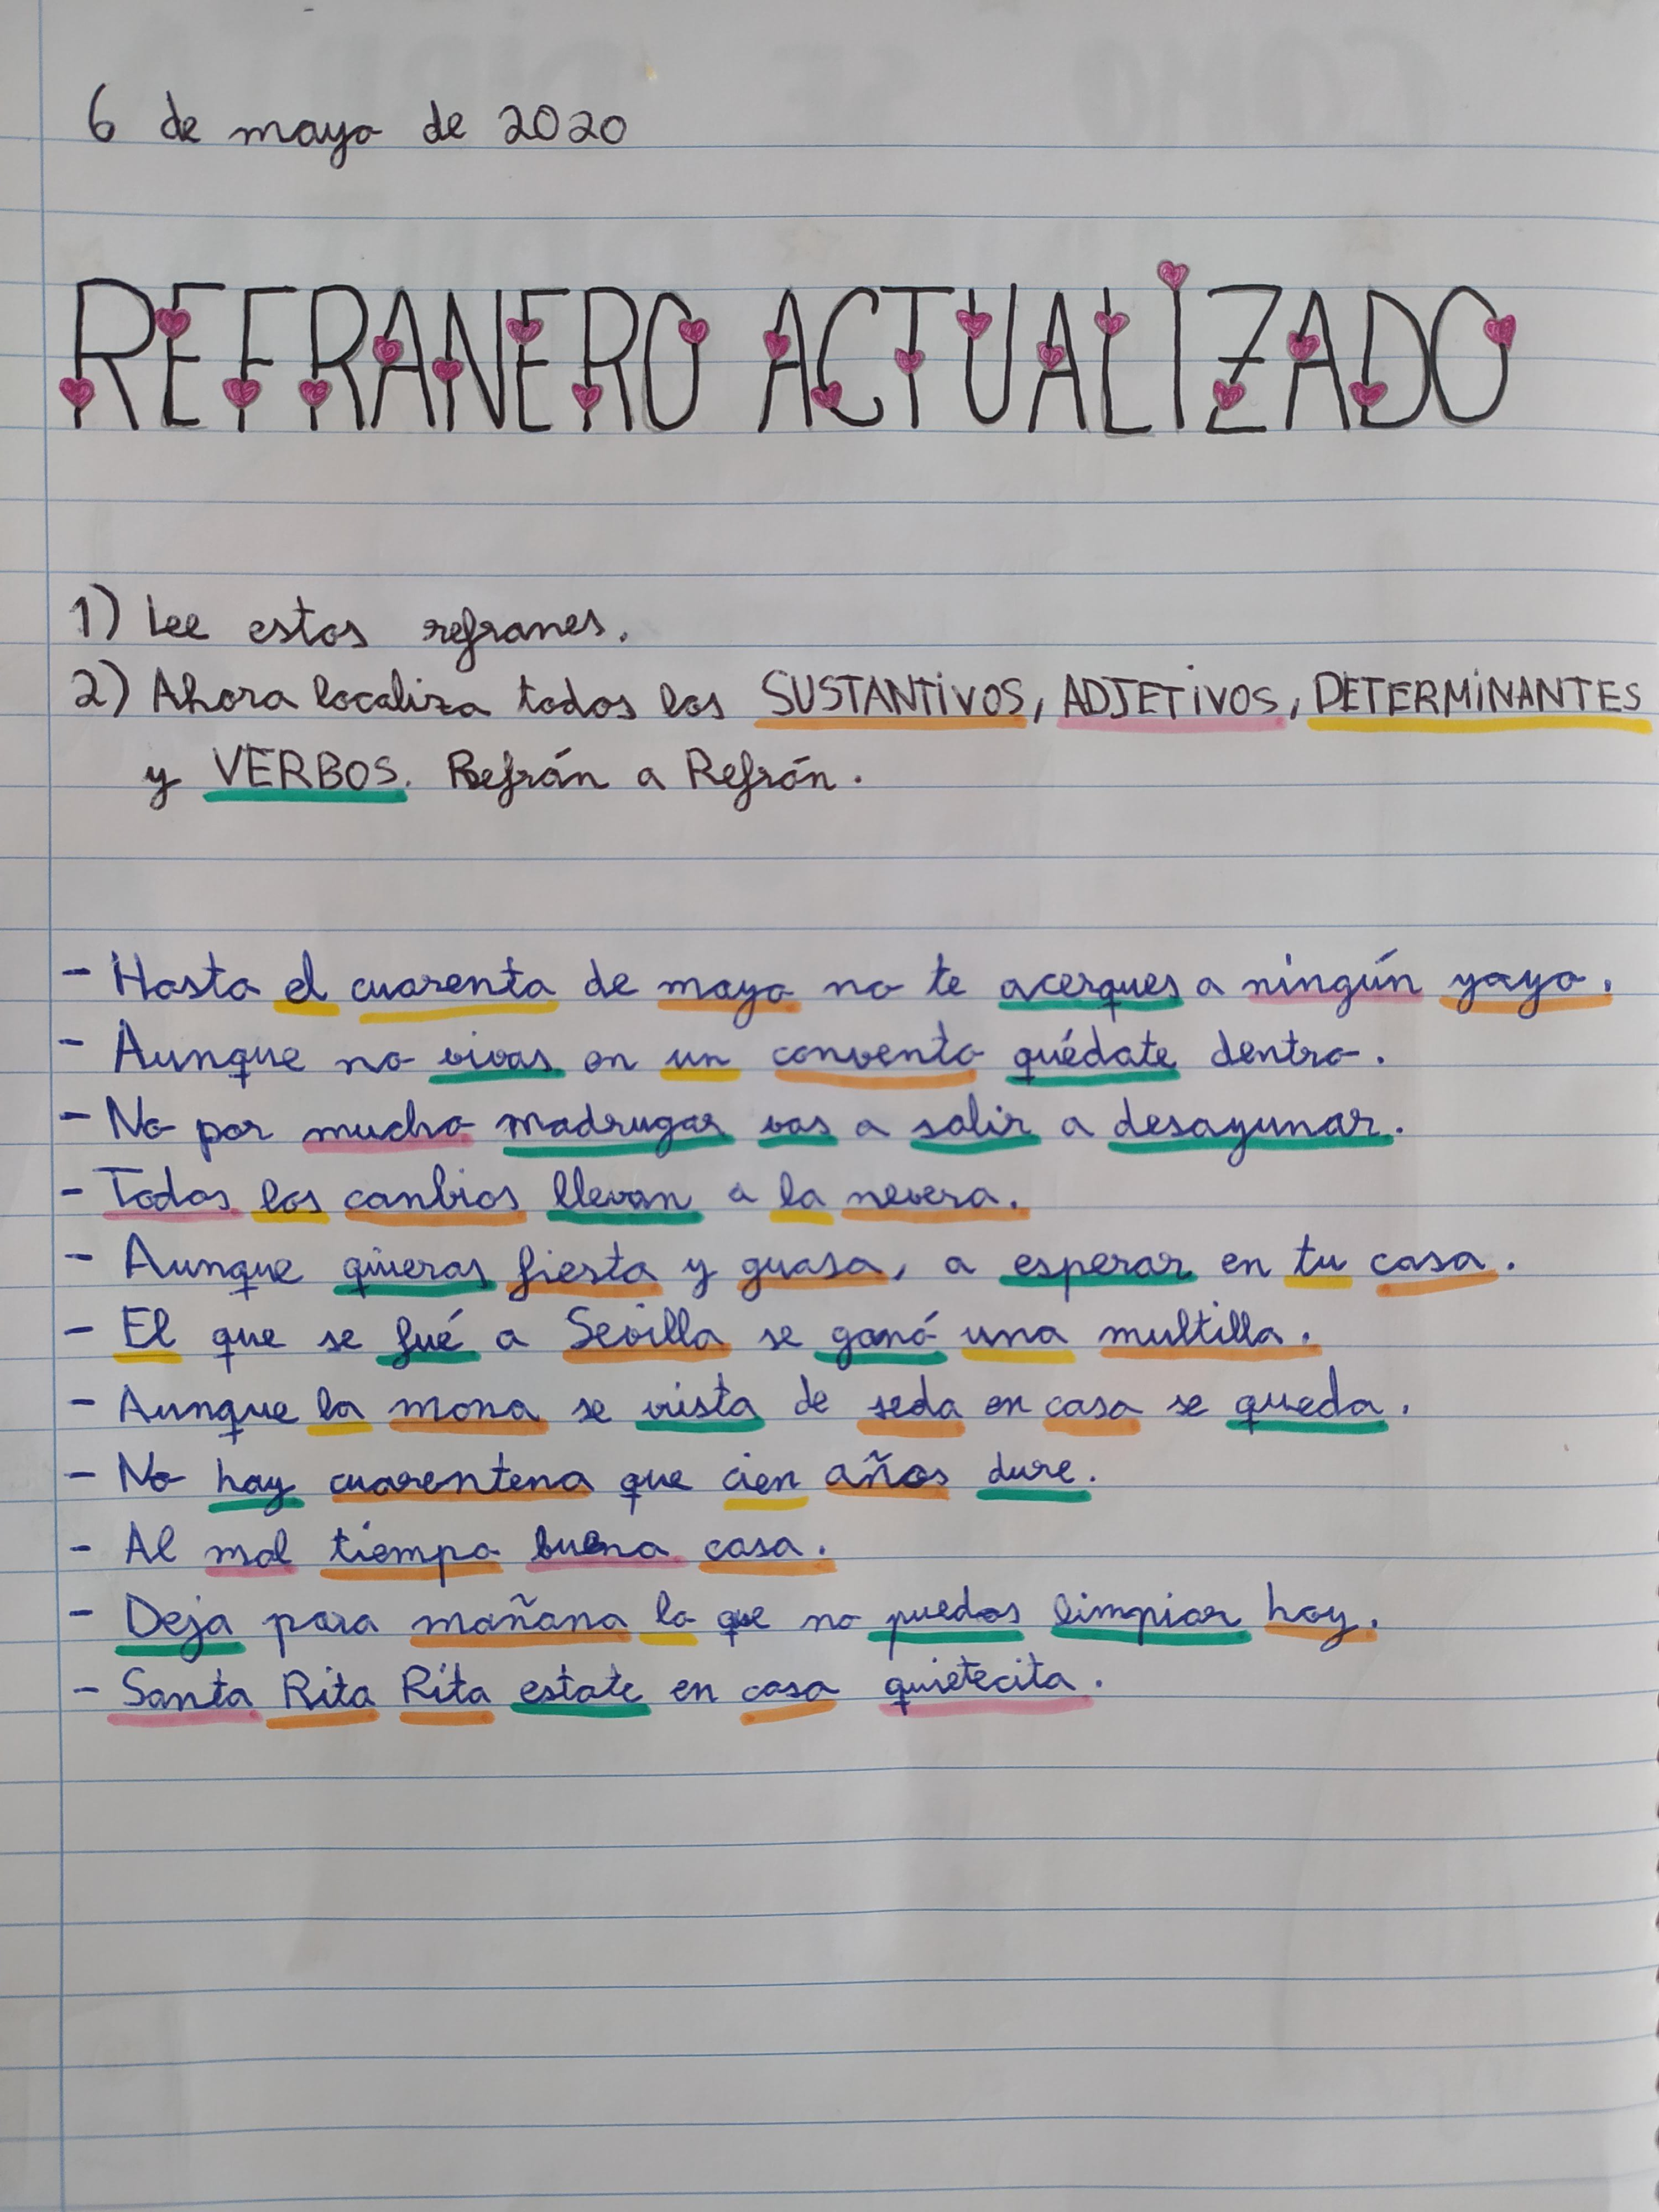 6 de mayo de 2020
REFRANERO ACTUALIZADO
1) Lee estos refranes.
2) Ahora localiza todos los SUSTANTIVOS, ADJETIVOS, DETERMINANTES
y VERBOS. Refrán a Refrán.
- Hasta el cuarenta de mayo no te acerques a ningún yayo.
- Aunque no vivas en un convento quédate dentro.
- No por mucho madrugar vas a salir a desayunar.
- Todos los canbios llevan a la nevera.
- Aunque quieras fiesta y guasa, a esperar en tu casa.
- El que se fué a Sevilla se ganó una multilla.
- Aunque la mona se vista de seda en casa se queda.
- No hay cuarentena que cien años dure.
- Al mal tiempo buena casa.
- Deja para mañana lo que no puedas limpiar hoy.
- Santa Rita Rita estate en casa quietecita.